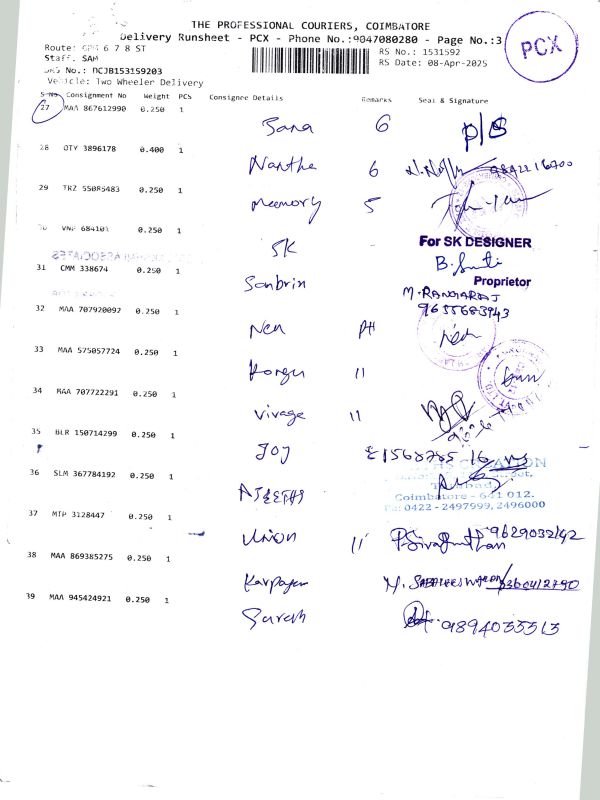 THE PROFESSIONAL COURIERS, COIMBATORE
Delivery Runsheet - PCX - Phone No.:9047080280 - Page No.:3
PCX
Route: GPM 6 7 8 ST
RS No.: 1531592
Staff: SAM
RS Date: 08-Apr-2025
DRS No.: DCJB153159203
Vehicle: Two Wheeler Delivery
S No. Consignment No Weight PCS Consignee Details Remarks Seal & Signature
27 MAA 867612990 0.250 1
Sana 6
28 QTY 3896178 0.400 1
Nantha 6 9842216700
29 TRZ 55085483 0.250 1
memory 5
30 VNF 684101 0.250 1
SK For SK DESIGNER
31 CMM 338674 0.250 1
Sanbrin
Proprietor
M. RANGARAJ
9655683943
32 MAA 707920092 0.250 1
Nea PH
33 MAA 575057724 0.250 1
Kongu 11
34 MAA 707722291 0.250 1
Vivage 11
35 BLR 150714299 0.250 1
JOY
36 SLM 367784192 0.250 1
AJEETHS
Coimbatore - 641 012.
Ph: 0422 - 2497999, 2496000
37 MTP 3128447 0.250 1
Union 11 9629032142
38 MAA 869385275 0.250 1
Karpagam
39 MAA 945424921 0.250 1
Suresh 9894035513